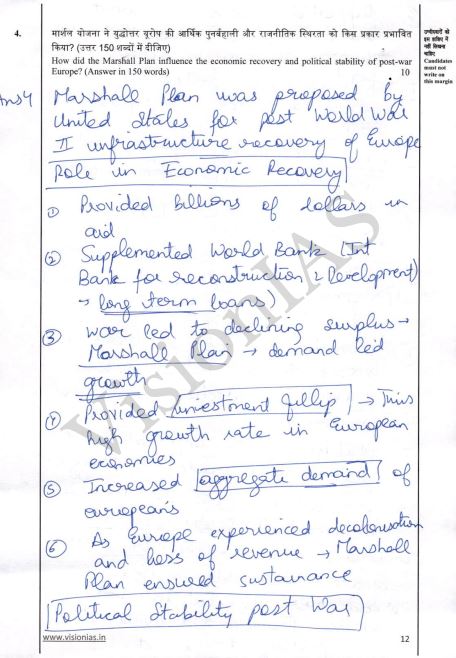 4.
मार्शल योजना ने युद्धोत्तर यूरोप की आर्थिक पुनर्बहाली और राजनीतिक स्थिरता को किस प्रकार प्रभावित
किया? (उत्तर 150 शब्दों में दीजिए)
How did the Marshall Plan influence the economic recovery and political stability of post-war
Europe? (Answer in 150 words)
10
उम्मीदवारों को
इस हाशिए में
नहीं लिखना
चाहिए
Candidates
must not
write on
this margin
Ans4
Marshall Plan was proposed by
United States for post World War
II infrastructure recovery of Europe
Role in Economic Recovery
① Provided billions of dollars in
aid
② Supplemented World Bank (Int
Bank for reconstruction & Development)
→ long term loans)
③ War led to declining surplus →
Marshall Plan → demand led
growth
④ Provided investment fillip → Thus
high growth rate in European
economies
⑤ Increased aggregate demand of
europeans
⑥ As Europe experienced decolonisation
and loss of revenue → Marshall
Plan ensured sustainance
Political Stability post War
www.visionias.in
12
VisionIAS